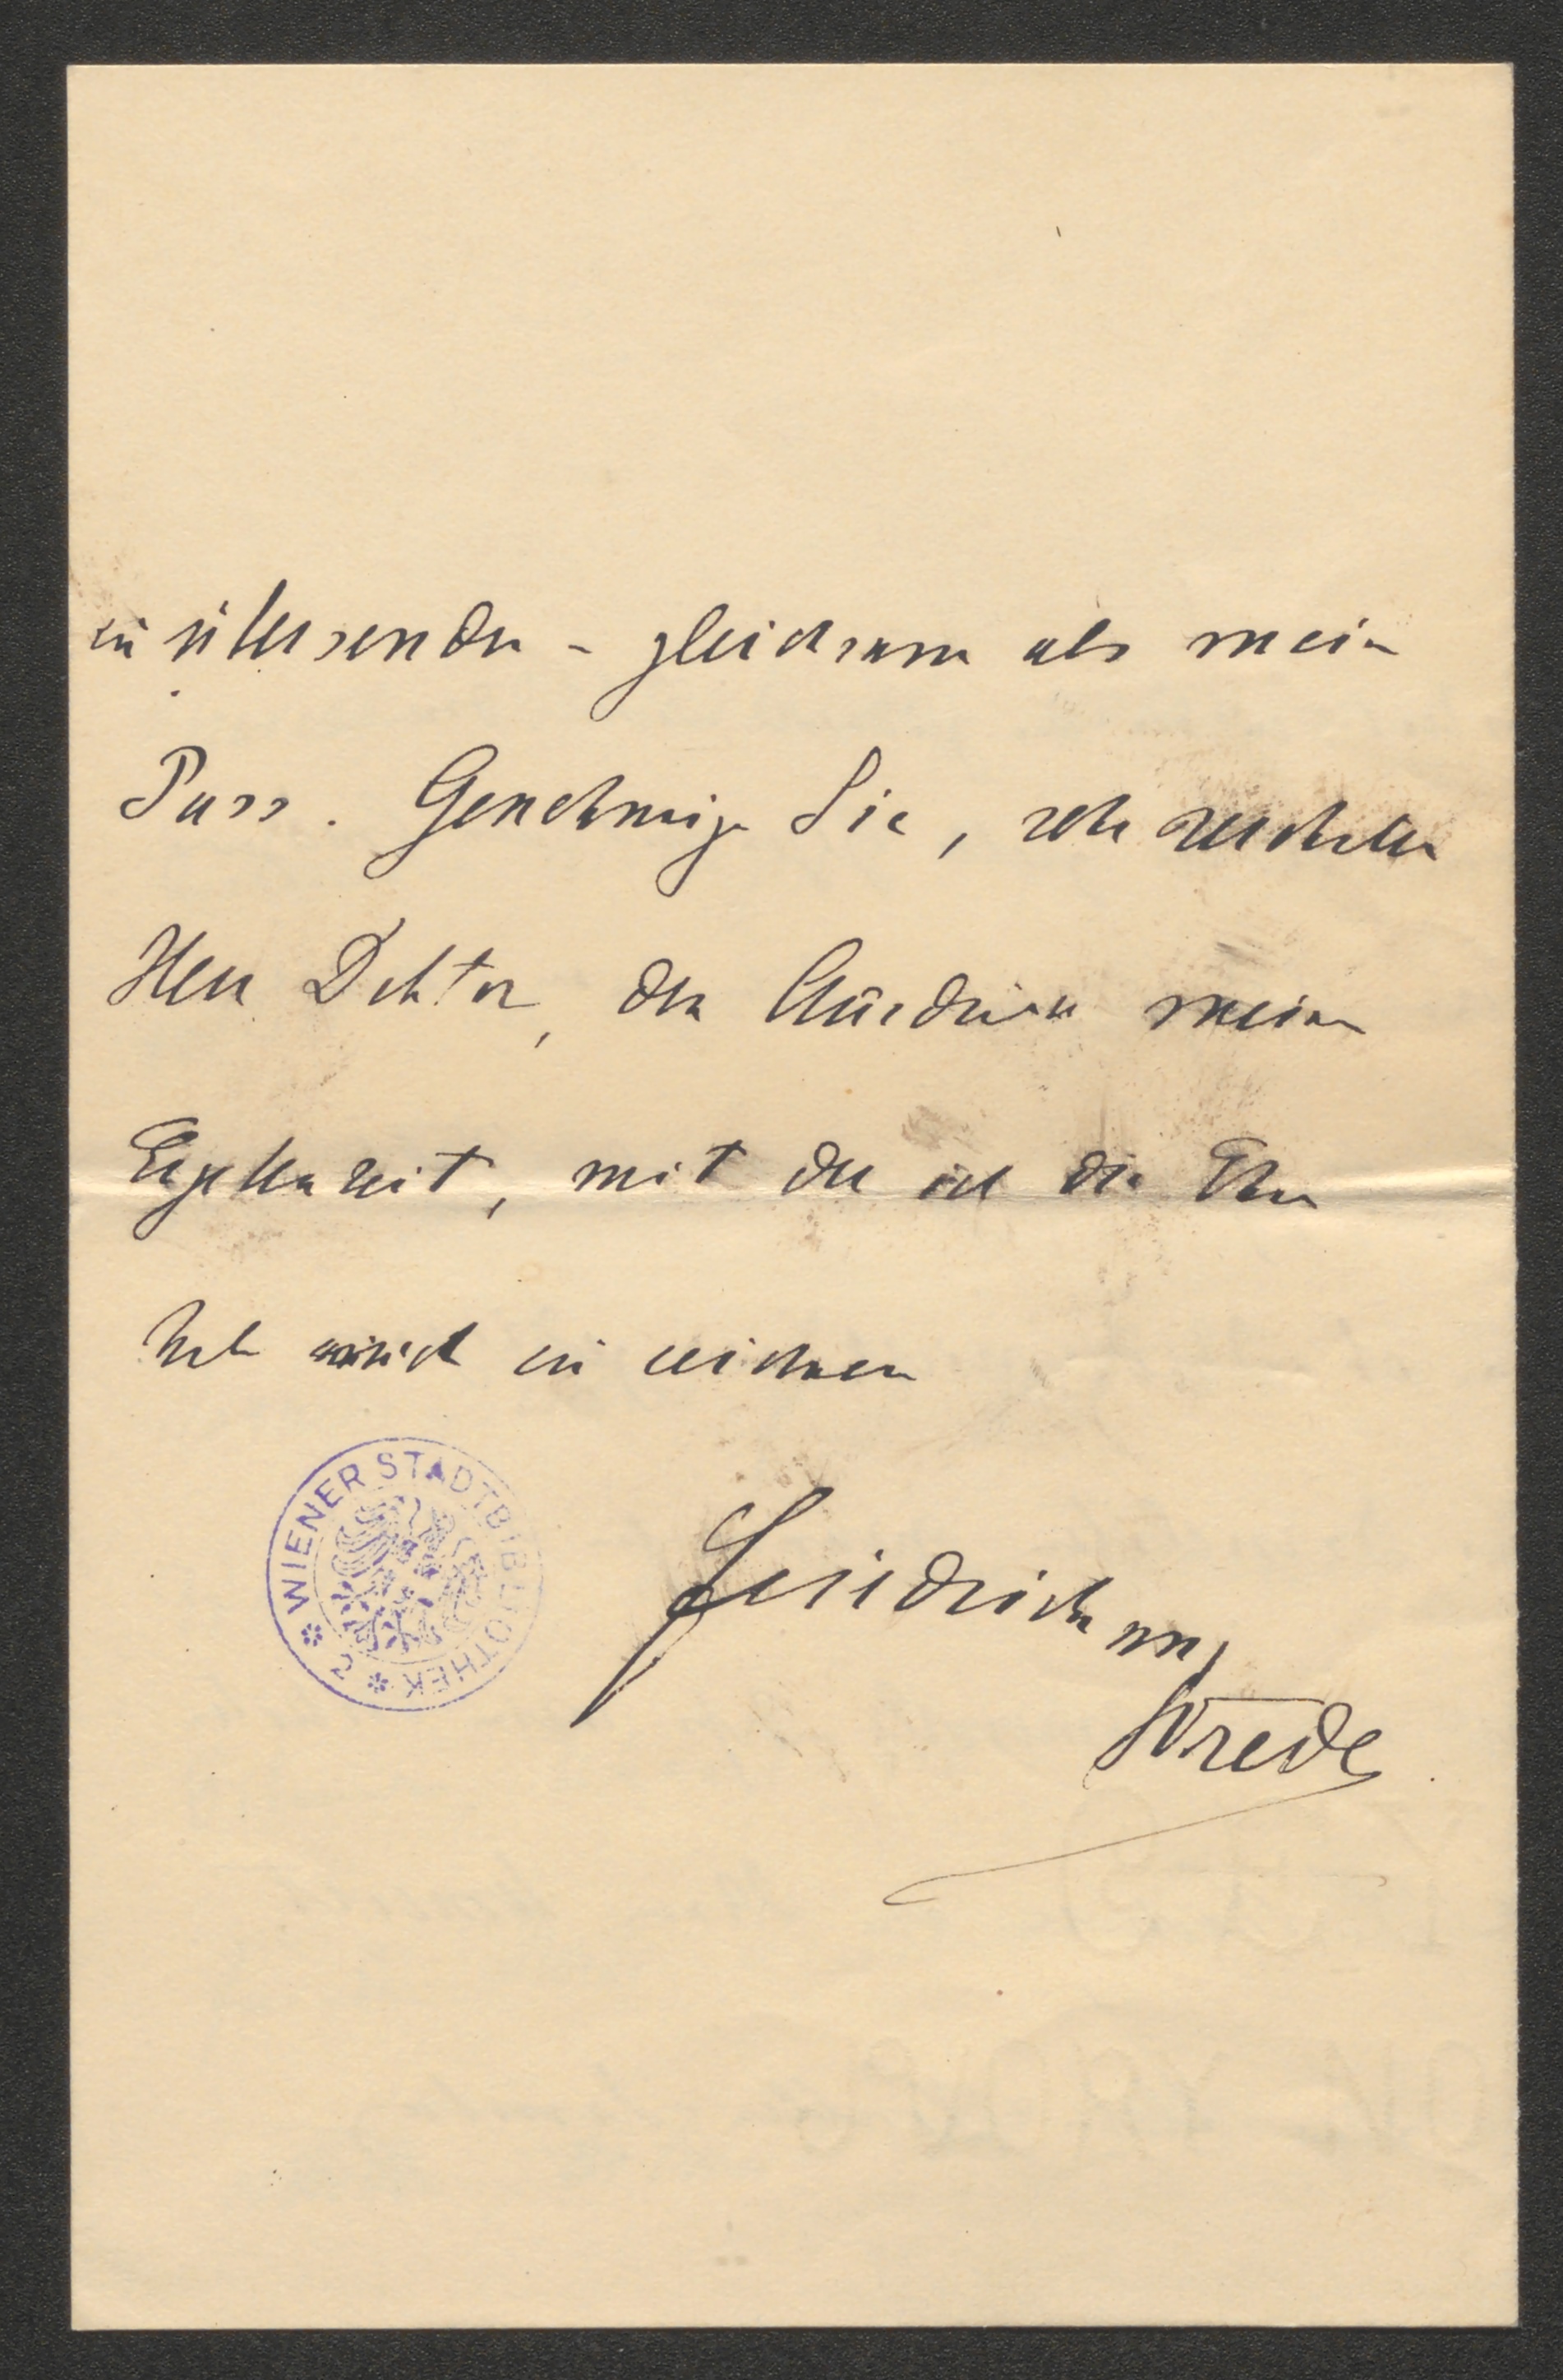 zu übersenden - gleichsam als mein
Pass. Genehmigen Sie, sehr verehrter
Herr Doktor, den Ausdruck meiner
Ergebenheit, mit der ich die Ehre
habe mich zu zeichnen
Friedrich
Wrede
WIENER STADTBIBLIOTHEK * 2 *